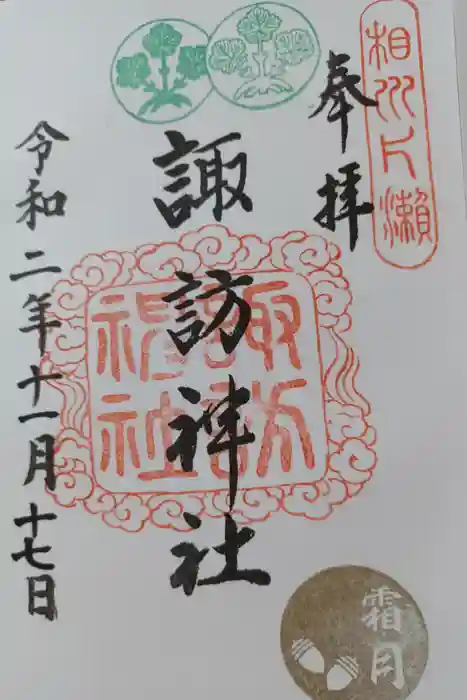 相州片瀬
奉拝
諏訪神社
諏訪神社
令和二年十一月十七日
霜月